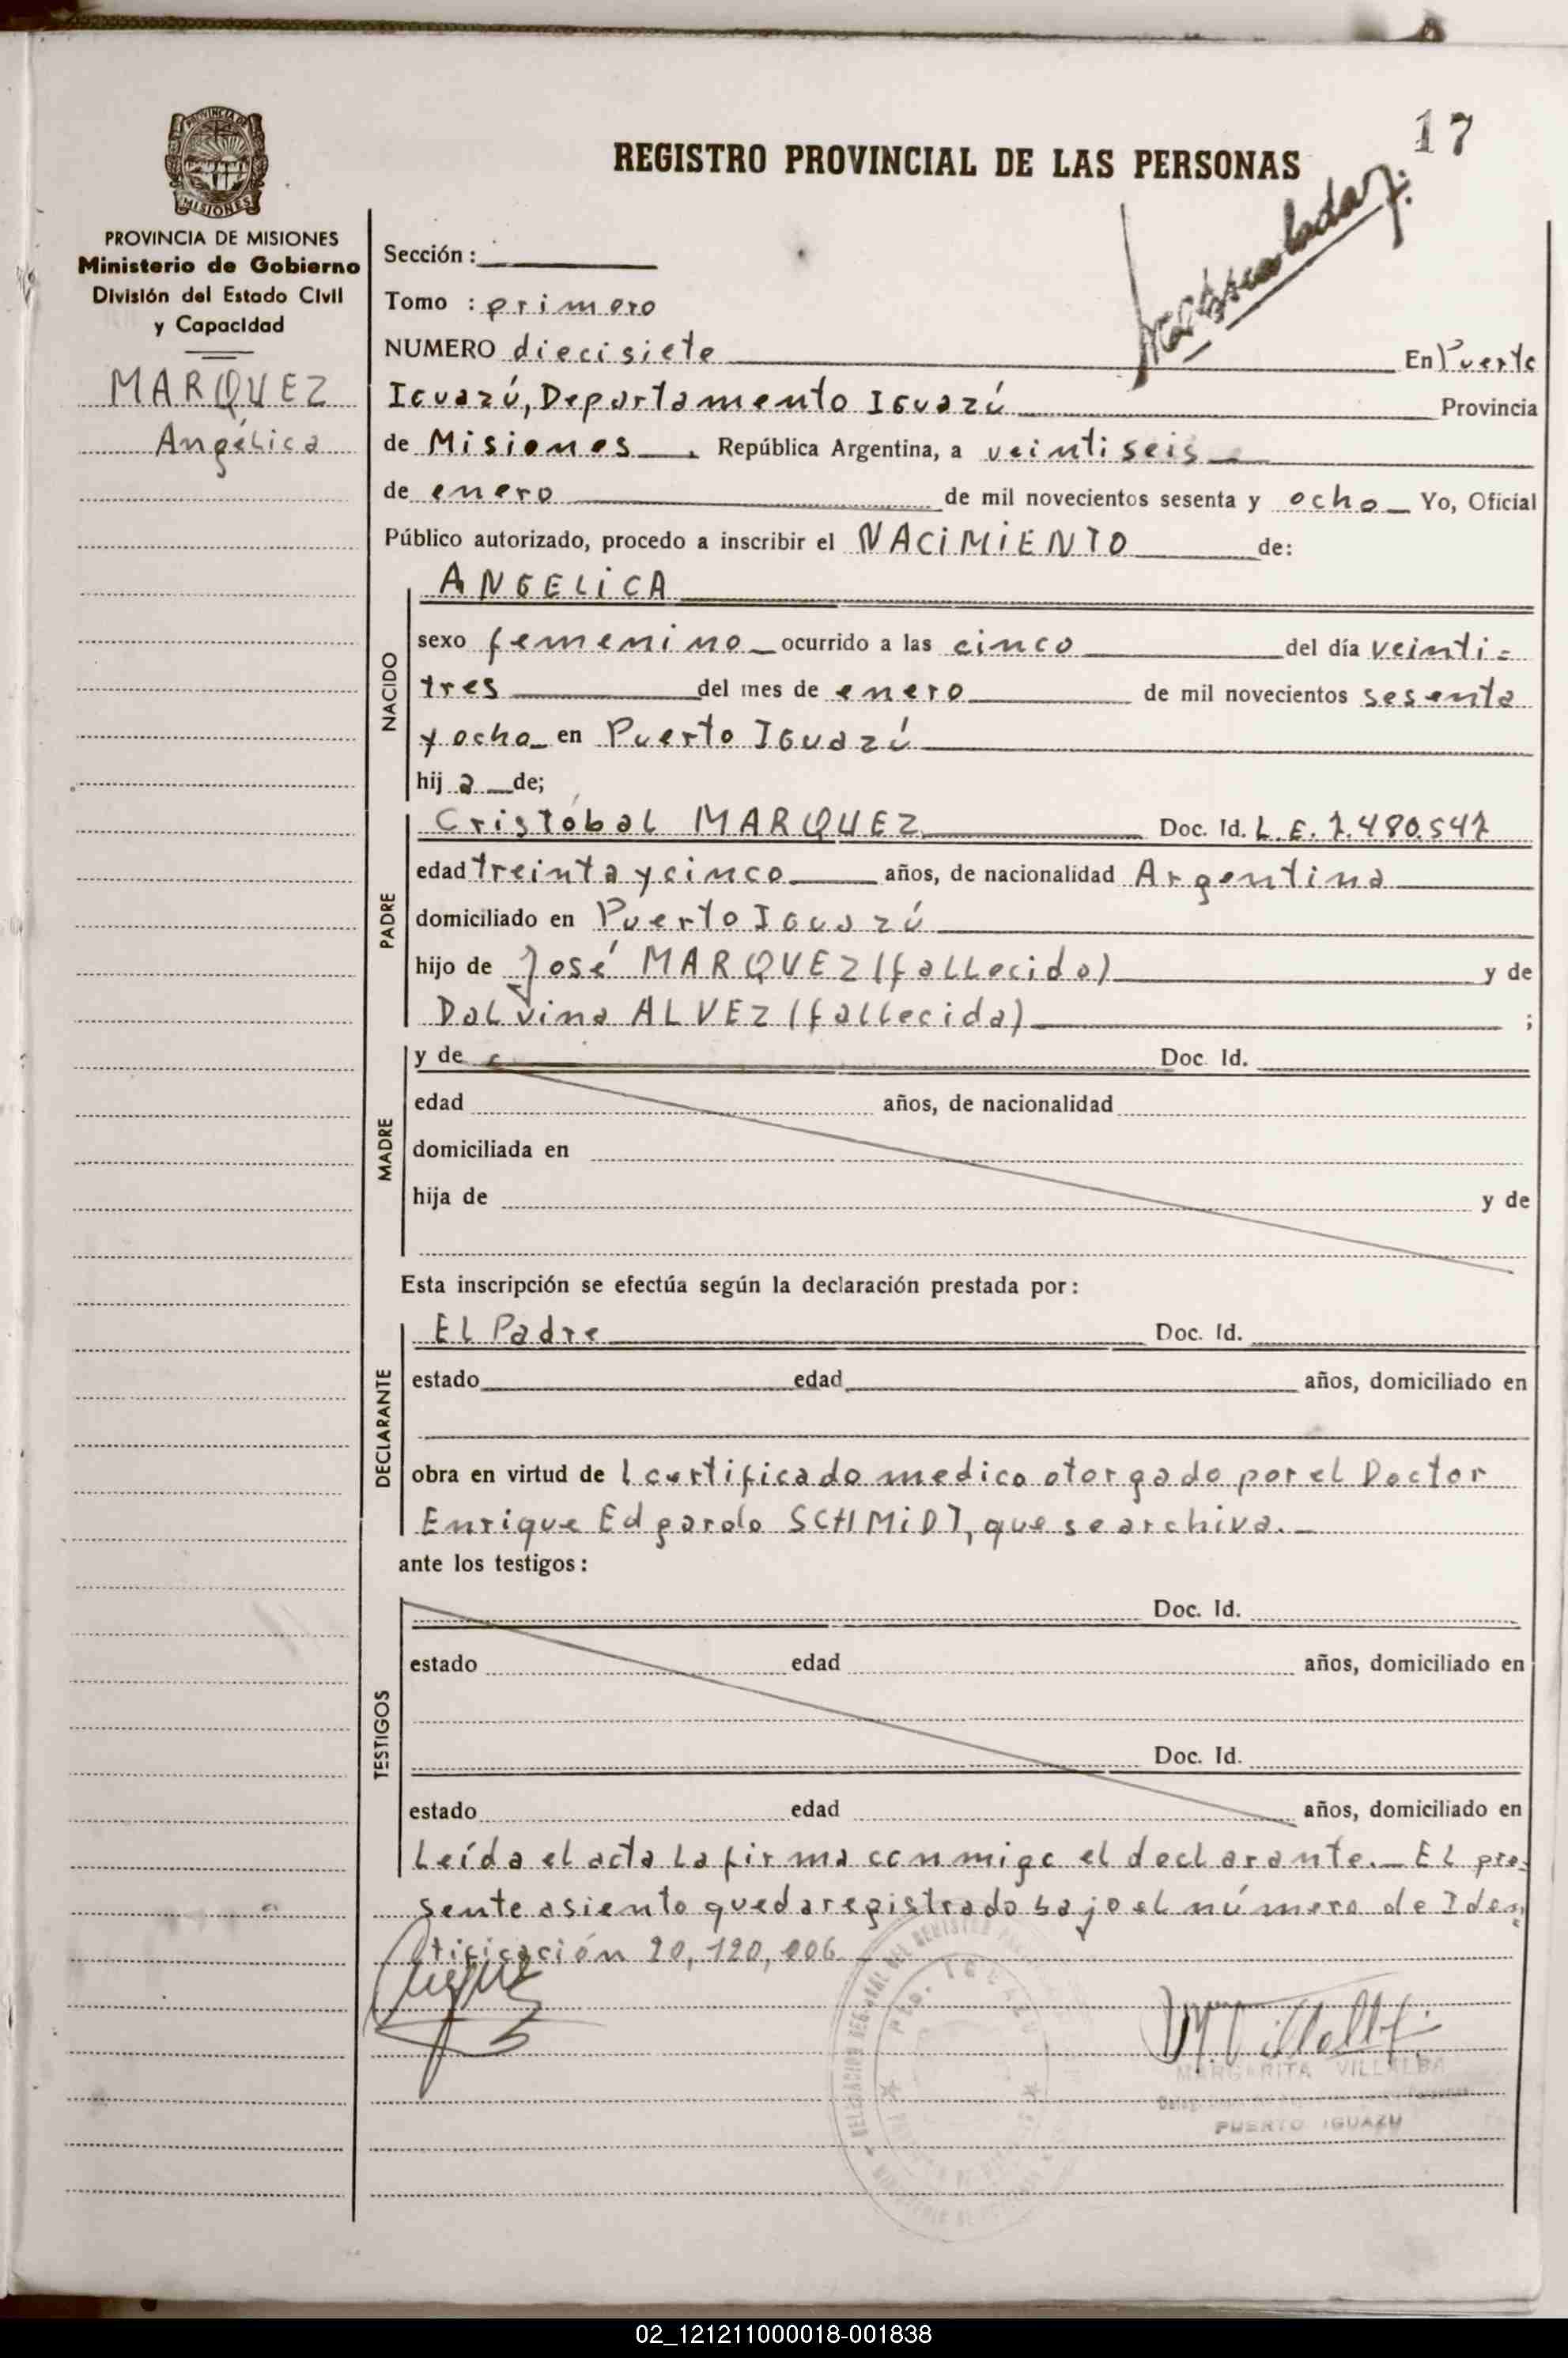 17
REGISTRO PROVINCIAL DE LAS PERSONAS
PROVINCIA DE
MISIONES
PROVINCIA DE MISIONES
Ministerio de Gobierno
División del Estado Civil
y Capacidad
MARQUEZ
Angélica
Sección :
Tomo : primero
NUMERO diecisiete En Puerto
Iguazú, Departamento Iguazú Provincia
de Misiones . República Argentina, a veintiseis
de enero de mil novecientos sesenta y ocho Yo, Oficial
Público autorizado, procedo a inscribir el NACIMIENTO de:
NACIDO
ANGELICA
sexo femenino ocurrido a las cinco del día veinti=
tres del mes de enero de mil novecientos sesenta
y ocho en Puerto Iguazú
hij a de;
PADRE
Cristóbal MARQUEZ Doc. Id. L.E. 7.480.547
edad treinta y cinco años, de nacionalidad Argentina
domiciliado en Puerto Iguazú
hijo de José MARQUEZ (fallecido) y de
Dalvina ALVEZ (fallecida) ;
MADRE
y de Doc. Id.
edad años, de nacionalidad
domiciliada en
hija de y de
Esta inscripción se efectúa según la declaración prestada por :
DECLARANTE
El Padre Doc. Id.
estado edad años, domiciliado en
obra en virtud de l certificado medico otorgado por el Doctor
Enrique Edgardo SCHMiDT, que se archiva.
ante los testigos :
TESTIGOS
Doc. Id.
estado edad años, domiciliado en
Doc. Id.
estado edad años, domiciliado en
Leída el acta la firma conmigo el declarante. El pre=
sente asiento queda registrado bajo el número de Iden
tificación 20,120,006
MARGARITA VILLALBA
PUERTO IGUAZU
02_121211000018-001838